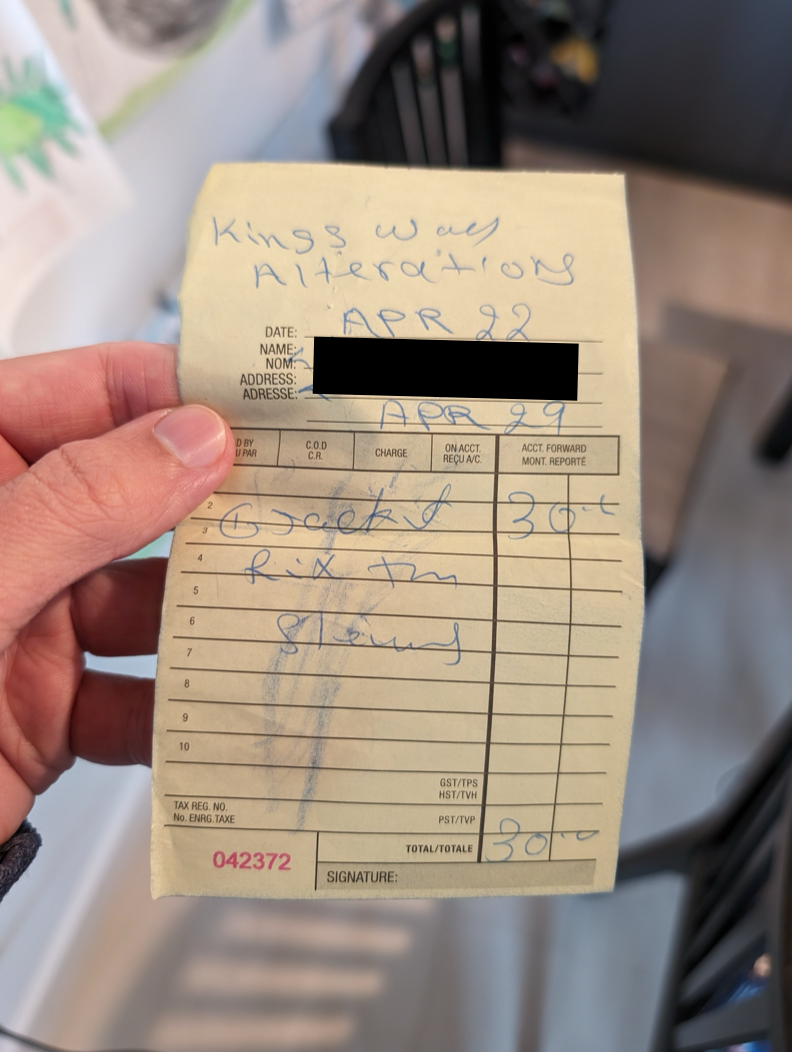 Kings way
Alterations
DATE: APR 22
NAME:
NOM:
ADDRESS:
ADRESSE:
APR 29
D BY
U PAR
C.O.D
C.R.
CHARGE
ON ACCT.
REÇU A/C.
ACCT. FORWARD
MONT. REPORTÉ
2
3
① Jacket 30
4
Fix the
5
6
7
8
9
10
GST/TPS
HST/TVH
TAX REG. NO.
No. ENRG.TAXE
PST/TVP
TOTAL/TOTALE 30
042372
SIGNATURE: